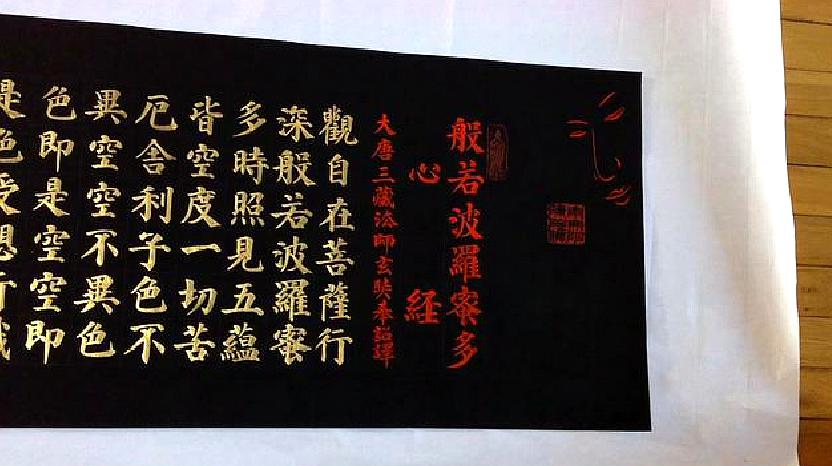 般若波羅蜜多
心経
大唐三藏法師玄奘奉詔譯
觀自在菩薩行
深般若波羅蜜
多時照見五蘊
皆空度一切苦
厄舍利子色不
異空空不異色
色即是空空即
是色受想行識